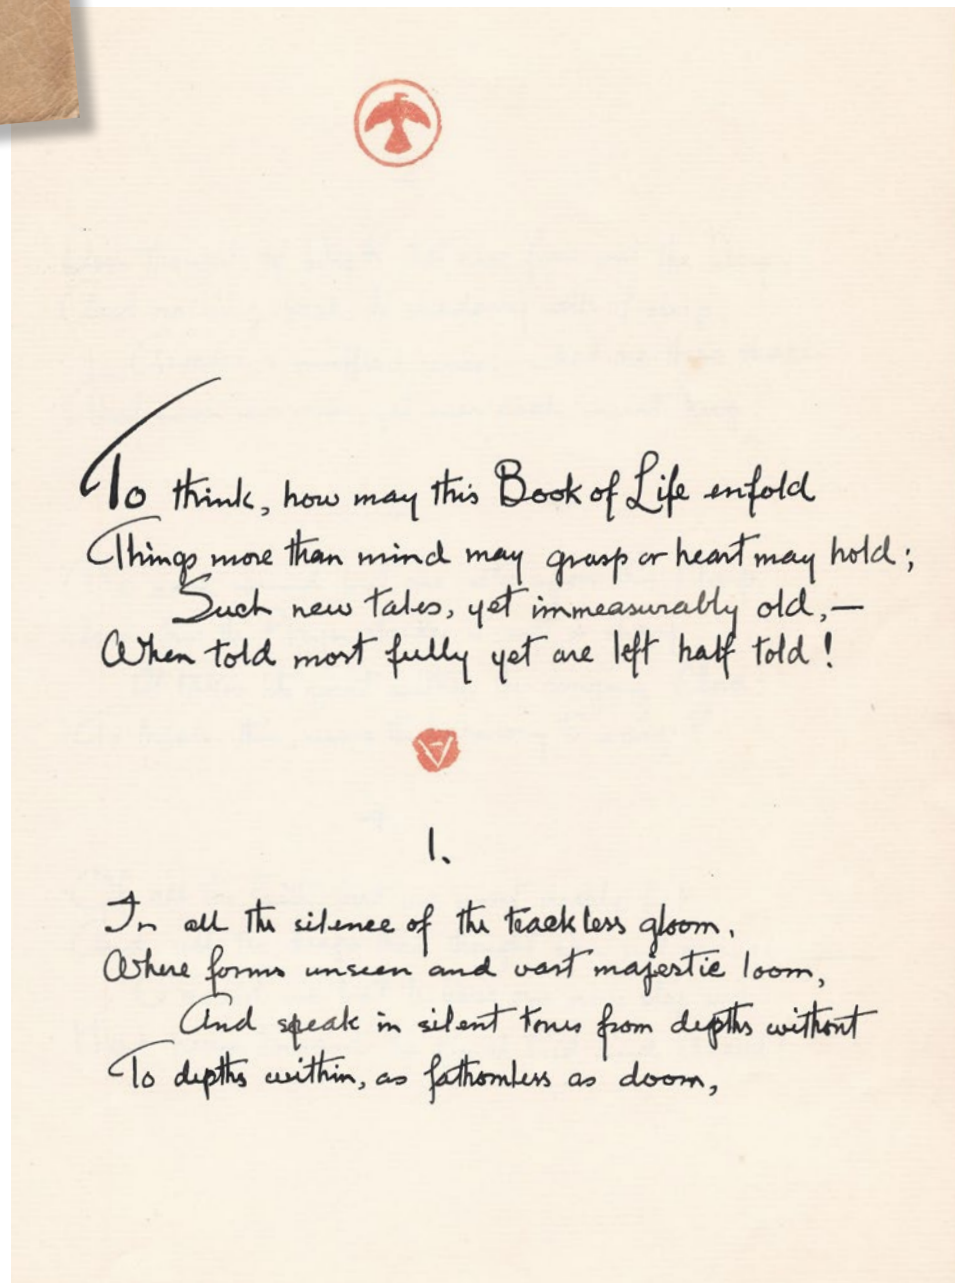 To think, how may this Book of Life enfold
Things more than mind may grasp or heart may hold;
Such new tales, yet immeasurably old,—
When told most fully yet are left half told!
1.
In all the silence of the trackless gloom,
Where forms unseen and vast majestic loom,
And speak in silent tones from depths without
To depths within, as fathomless as doom,